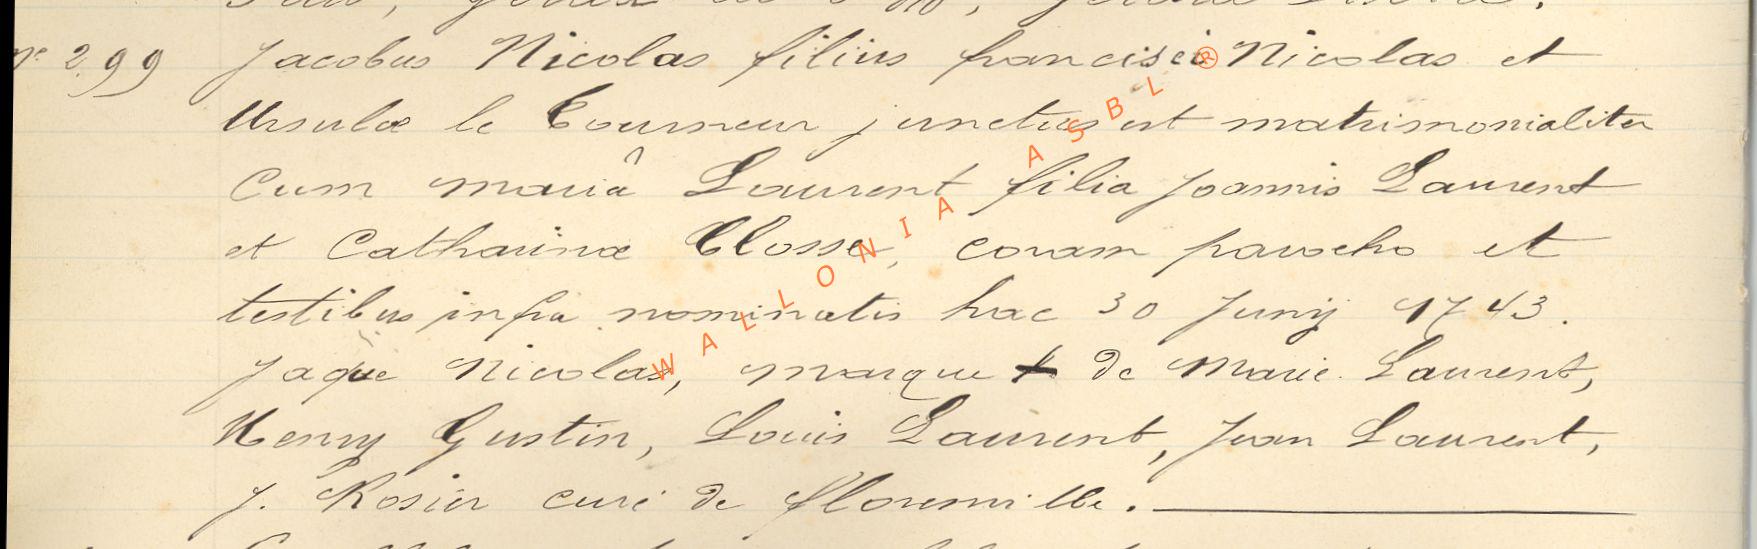 n° 299 Jacobus Nicolas filius francisci Nicolas et
Ursulæ le Tourneur junctus est matrimonialiter
Cum mariâ Laurent filia Joannis Laurent
et Catharinæ Closse, coram parocho et
testibus infra nominatis hac 30 Junij 1743.
Jaque Nicolas, marque + de Marie Laurent,
Henry Gustin, Louis Laurent, Jean Laurent,
J. Rosier curé de florenville.
WALLONIA ASBL ®